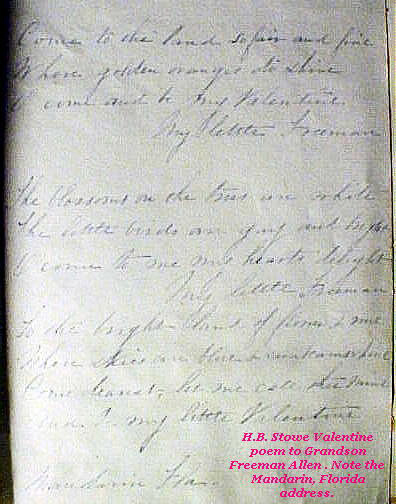 Come to the land so fair and fine
Where golden oranges do shine
O come and be my Valentine
My little Freeman
The blossoms on the trees are white
The little birds are gay and bright
O come to me my hearts delight
My little Freeman
To the bright land of
Where skies are blue
Come dearest, let me call thee mine
And be my little Valentine
Mandarin Fla.
H.B. Stowe Valentine
poem to Grandson
Freeman Allen . Note the
Mandarin, Florida
address.